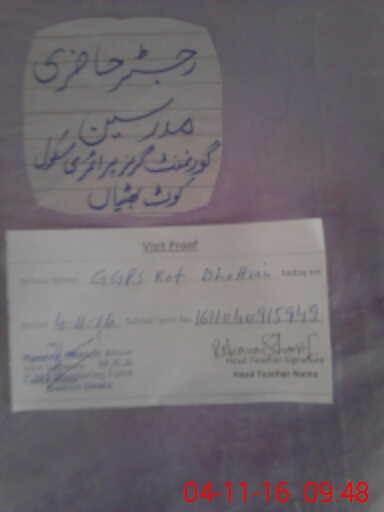 رجسٹر حاضری
مدرسین
گورنمنٹ گرلز پرائمری سکول
کوٹ بھٹیاں
Visit Proof
School Name GGPS Kot Bhattian today on
Dated 4-11-16 School form No. 1611040915949
Head Teacher Signature
Head Teacher Name
04-11-16 09:48